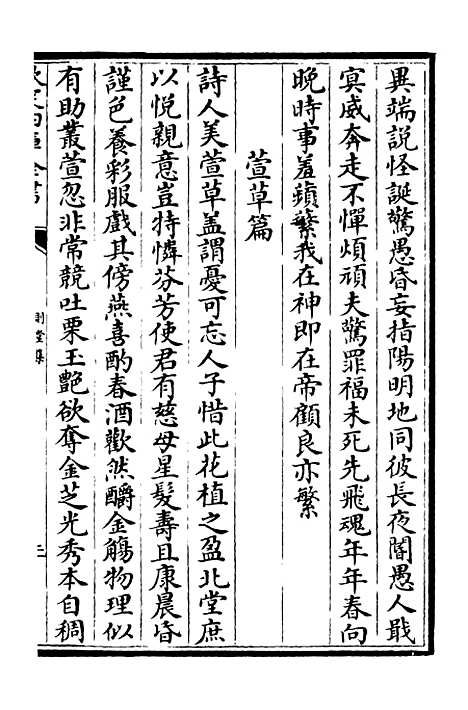 異端説怪誕驚愚昏妄指陽明地同彼長夜闇愚人戢
冥威奔走不憚煩頑夫驚罪福未死先飛魂年年春向
晚時事羞蘋蘩我在神即在帝顧良亦繁
萱草篇
詩人美萱草盖謂憂可忘人子惜此花植之盈北堂庶
以悦親意豈特憐芬芳使君有慈母星髮壽且康晨昏
謹色養彩服戲其傍燕喜酌春酒歡然釂金觴物理似
有助叢萱忽非常競吐栗玉艷欲奪金芝光秀本自稠
欽定四庫全書
三